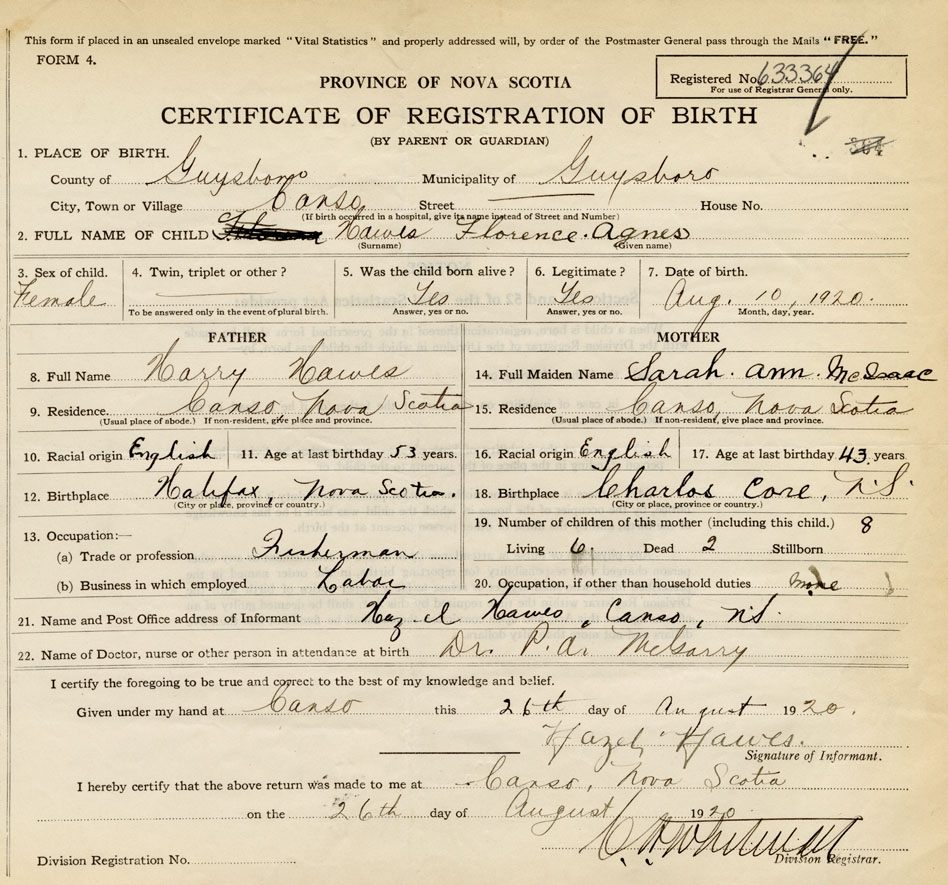 This form if placed in an unsealed envelope marked "Vital Statistics" and properly addressed will, by order of the Postmaster General pass through the Mails "FREE."
FORM 4.
PROVINCE OF NOVA SCOTIA
Registered No. 633364
For use of Registrar General only.
CERTIFICATE OF REGISTRATION OF BIRTH
(BY PARENT OR GUARDIAN)
1. PLACE OF BIRTH.
County of Guysboro Municipality of Guysboro
City, Town or Village Canso Street House No.
(If birth occurred in a hospital, give its name instead of Street and Number)
2. FULL NAME OF CHILD Hawes Florence Agnes
(Surname) (Given name)
3. Sex of child. 4. Twin, triplet or other? 5. Was the child born alive? 6. Legitimate? 7. Date of birth.
Female Yes Yes Aug. 10, 1920.
To be answered only in the event of plural birth. Answer, yes or no. Answer, yes or no. Month, day, year.
FATHER MOTHER
8. Full Name Harry Hawes 14. Full Maiden Name Sarah. Ann. McIsaac
9. Residence. Canso, Nova Scotia 15. Residence Canso, Nova Scotia
(Usual place of abode.) If non-resident, give place and province. (Usual place of abode.) If non-resident, give place and province.
10. Racial origin English 11. Age at last birthday 53 years. 16. Racial origin English 17. Age at last birthday 43 years
12. Birthplace Halifax, Nova Scotia. 18. Birthplace Charlos Cove, N.S.
(City or place, province or country.) (City or place, province or country.)
13. Occupation:— 19. Number of children of this mother (including this child.) 8
(a) Trade or profession Fisherman Living 6. Dead 2 Stillborn
(b) Business in which employed Labor 20. Occupation, if other than household duties none
21. Name and Post Office address of Informant Hazel Hawes, Canso, N.S.
22. Name of Doctor, nurse or other person in attendance at birth Dr. P. A. McGarry
I certify the foregoing to be true and correct to the best of my knowledge and belief.
Given under my hand at Canso this 26th day of August 1920.
Hazel Hawes.
Signature of Informant.
I hereby certify that the above return was made to me at Canso, Nova Scotia
on the 26th day of August 1920
Division Registration No. Division Registrar.